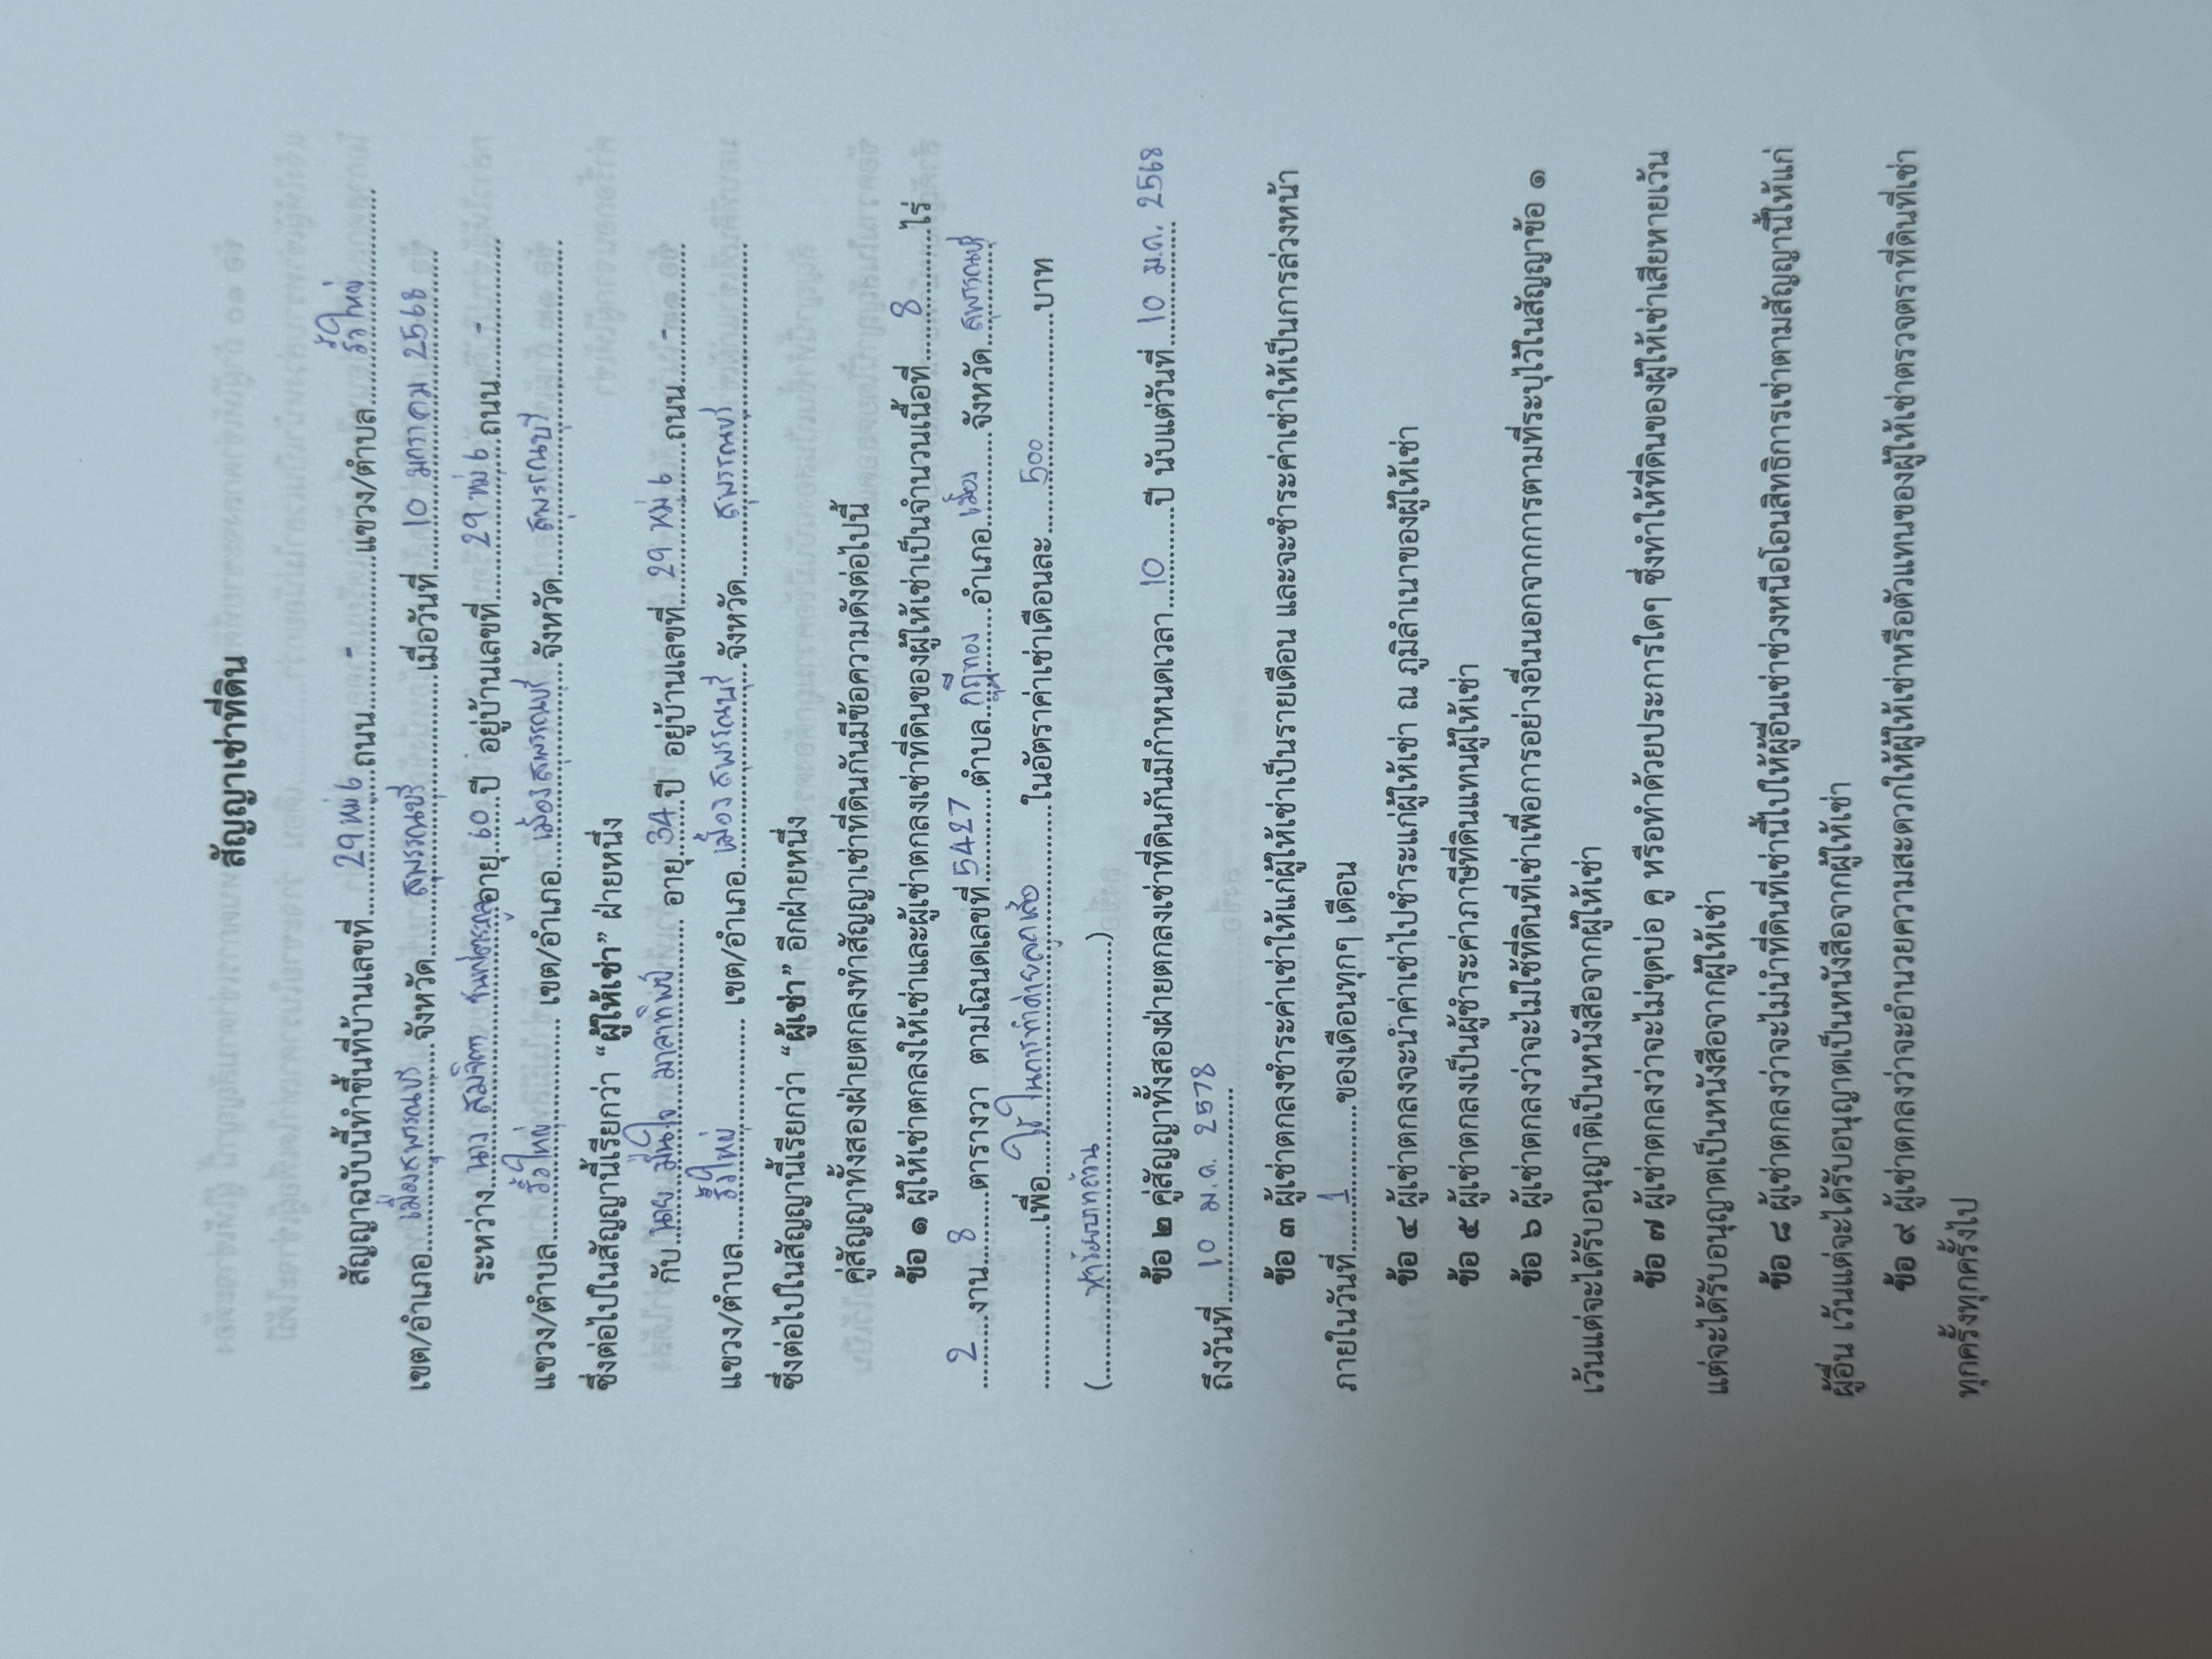 สัญญาเช่าที่ดิน
สัญญาฉบับนี้ทำขึ้นที่บ้านเลขที่ 29 หมู่ 6 ถนน - แขวง/ตำบล รั้วใหญ่
เขต/อำเภอ เมืองสุพรรณบุรี จังหวัด สุพรรณบุรี เมื่อวันที่ 10 มกราคม 2568
ระหว่าง นาง สมจิตร อายุ 60 ปี อยู่บ้านเลขที่ 29 หมู่ 6 ถนน -
แขวง/ตำบล รั้วใหญ่ เขต/อำเภอ เมืองสุพรรณบุรี จังหวัด สุพรรณบุรี
ซึ่งต่อไปในสัญญานี้เรียกว่า “ผู้ให้เช่า” ฝ่ายหนึ่ง
กับ นาย มั่นใจ มาลาทิพย์ อายุ 34 ปี อยู่บ้านเลขที่ 29 หมู่ 6 ถนน -
แขวง/ตำบล รั้วใหญ่ เขต/อำเภอ เมืองสุพรรณบุรี จังหวัด สุพรรณบุรี
ซึ่งต่อไปในสัญญานี้เรียกว่า “ผู้เช่า” อีกฝ่ายหนึ่ง
คู่สัญญาทั้งสองฝ่ายตกลงทำสัญญาเช่าที่ดินกันมีข้อความดังต่อไปนี้
ข้อ ๑ ผู้ให้เช่าตกลงให้เช่าและผู้เช่าตกลงเช่าที่ดินของผู้ให้เช่าเป็นจำนวนเนื้อที่ 8 ไร่
2 งาน 8 ตารางวา ตามโฉนดเลขที่ 5427 ตำบล อำเภอ เมือง จังหวัด สุพรรณบุรี
เพื่อ ใช้ในการทำค่ายลูกเสือ ในอัตราค่าเช่าเดือนละ 500 บาท
(ห้าร้อยบาทถ้วน)
ข้อ ๒ คู่สัญญาทั้งสองฝ่ายตกลงเช่าที่ดินกันมีกำหนดเวลา 10 ปี นับแต่วันที่ 10 ม.ค. 2568
ถึงวันที่ 10 ม.ค. 2578
ข้อ ๓ ผู้เช่าตกลงชำระค่าเช่าให้แก่ผู้ให้เช่าเป็นรายเดือน และจะชำระค่าเช่าให้เป็นการล่วงหน้า
ภายในวันที่ 1 ของเดือนทุกๆ เดือน
ข้อ ๔ ผู้เช่าตกลงจะนำค่าเช่าไปชำระแก่ผู้ให้เช่า ณ ภูมิลำเนาของผู้ให้เช่า
ข้อ ๕ ผู้เช่าตกลงเป็นผู้ชำระค่าภาษีที่ดินแทนผู้ให้เช่า
ข้อ ๖ ผู้เช่าตกลงว่าจะไม่ใช้ที่ดินที่เช่าเพื่อการอย่างอื่นนอกจากการตามที่ระบุไว้ในสัญญาข้อ ๑
เว้นแต่จะได้รับอนุญาติเป็นหนังสือจากผู้ให้เช่า
ข้อ ๗ ผู้เช่าตกลงว่าจะไม่ขุดบ่อ คู หรือทำด้วยประการใดๆ ซึ่งทำให้ที่ดินของผู้ให้เช่าเสียหายเว้น
แต่จะได้รับอนุญาตเป็นหนังสือจากผู้ให้เช่า
ข้อ ๘ ผู้เช่าตกลงว่าจะไม่นำที่ดินที่เช่านี้ไปให้ผู้อื่นเช่าช่วงหนือโอนสิทธิการเช่าตามสัญญานี้ให้แก่
ผู้อื่น เว้นแต่จะได้รับอนุญาตเป็นหนังสือจากผู้ให้เช่า
ข้อ ๙ ผู้เช่าตกลงว่าจะอำนวยความสะดวกให้ผู้ให้เช่าหรือตัวแทนของผู้ให้เช่าตรวจตราที่ดินที่เช่า
ทุกครั้งทุกครั้งไป